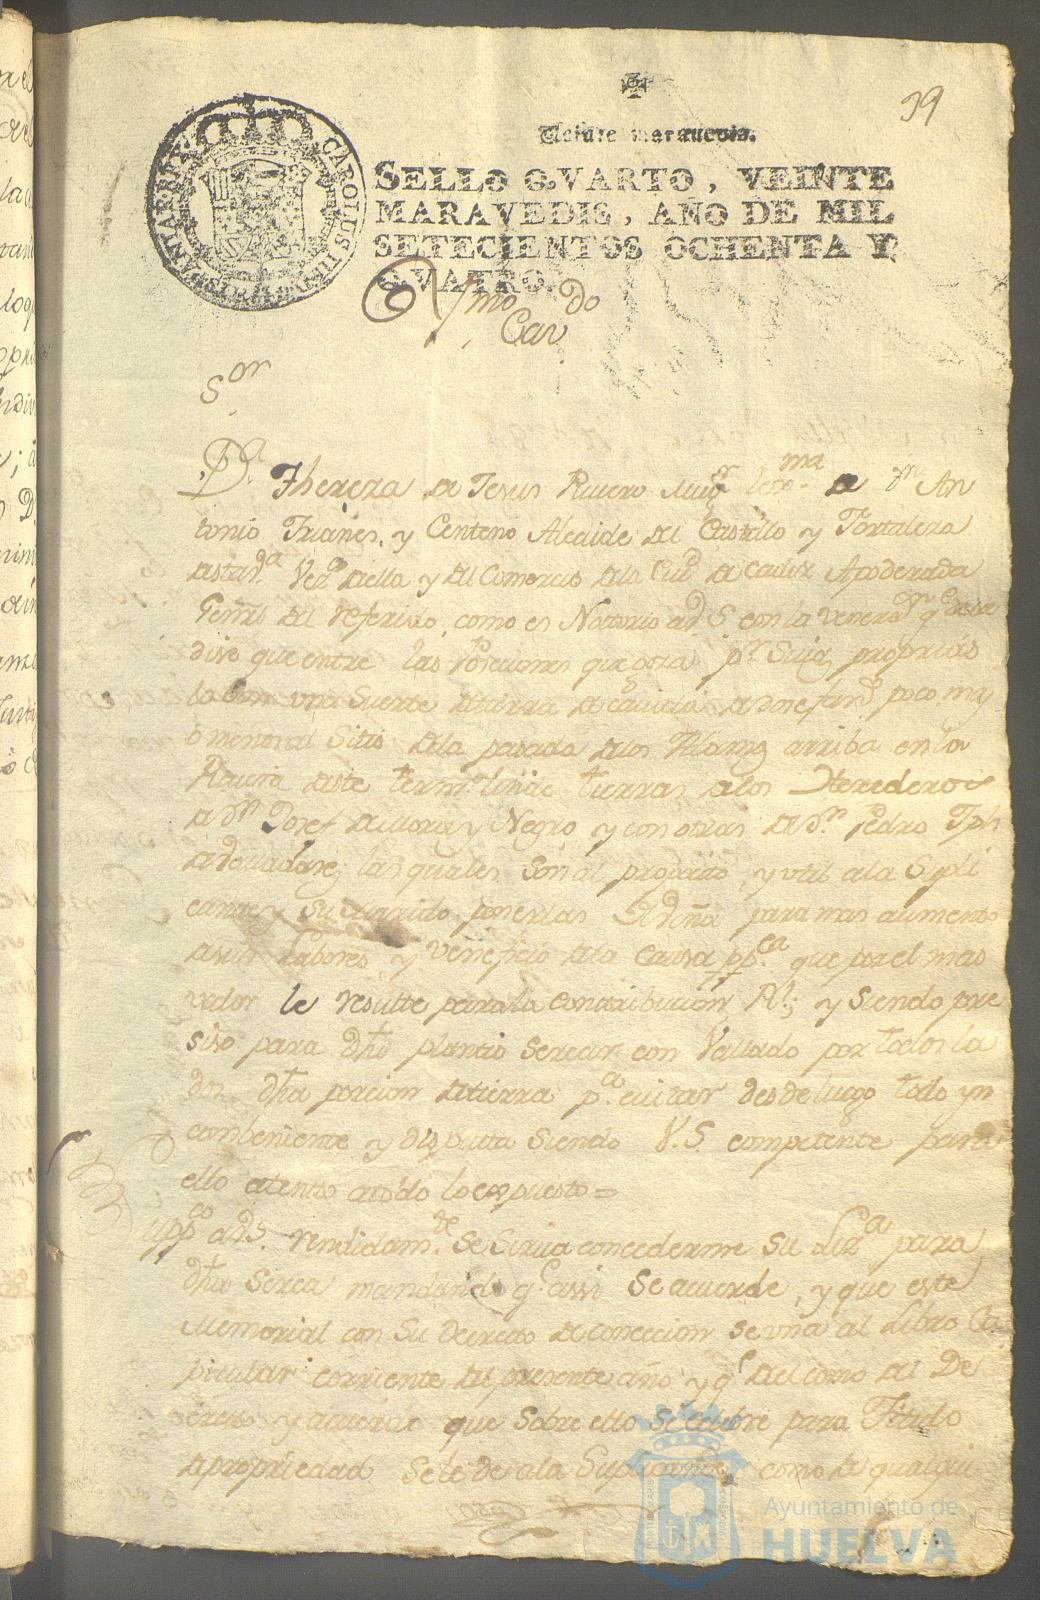 39
Veinte maravedis.
SELLO QVARTO, VEINTE
MARAVEDIS, AÑO DE MIL
SETECIENTOS OCHENTA Y
QVATRO.
CAROLUS III
Ylmo Cavdo
Sor
Da. Thereza de Jesus Rivero Mugr. lexma. de Dn. An
tonio Trianes, y Centeno Alcaide del Castillo y Fortaleza
desta Va. Veza. della y del Comercio dela Ciud. de Cadiz Apoderada
Genrl. del referido, como es Notorio a V.S con la veneron. q. deve
dise que entre las Posesiones que goza pr. Suias proprias
lo es una Suerte de tierra de cavida de dose fans. poco mas
ô menos al Sitio dela pasada delos Alamos arriba en la
Rivera deste termo. linde tierras delos Herederos
de Dn. Josef de Mora y Negro, y con otras de Dn. Pedro Jph
de Valladares, las quales son al proposito, y util ala Supli
cante y Su Marido ponerlas de Viña para mas aumento
de sus Labores, y veneficio dela Causa ppca. que por el mas
valor le resulte para la contribucion Rl.; y siendo pre
siso para dho plantio sercar con Vallado por todos la
dos dha porcion de tierra pa. evitar desde luego todo yn
conbeniente y disputa siendo V.S competente para
ello atento a todo lo expuesto =
Suppco. a V.S. rendidamte. se sirva concederme su Liza. para
dha serca mandando q. assi se acuerde, y que este
Memorial con su Decreto de consecion se una al Libro Ca
pitular corriente del presente año y q. del como del De
creto y acuerdo que sobre ello se celebre para Titulo
de propriedad se le de ala Suplicante, como de qualqui
Ayuntamiento de
HUELVA